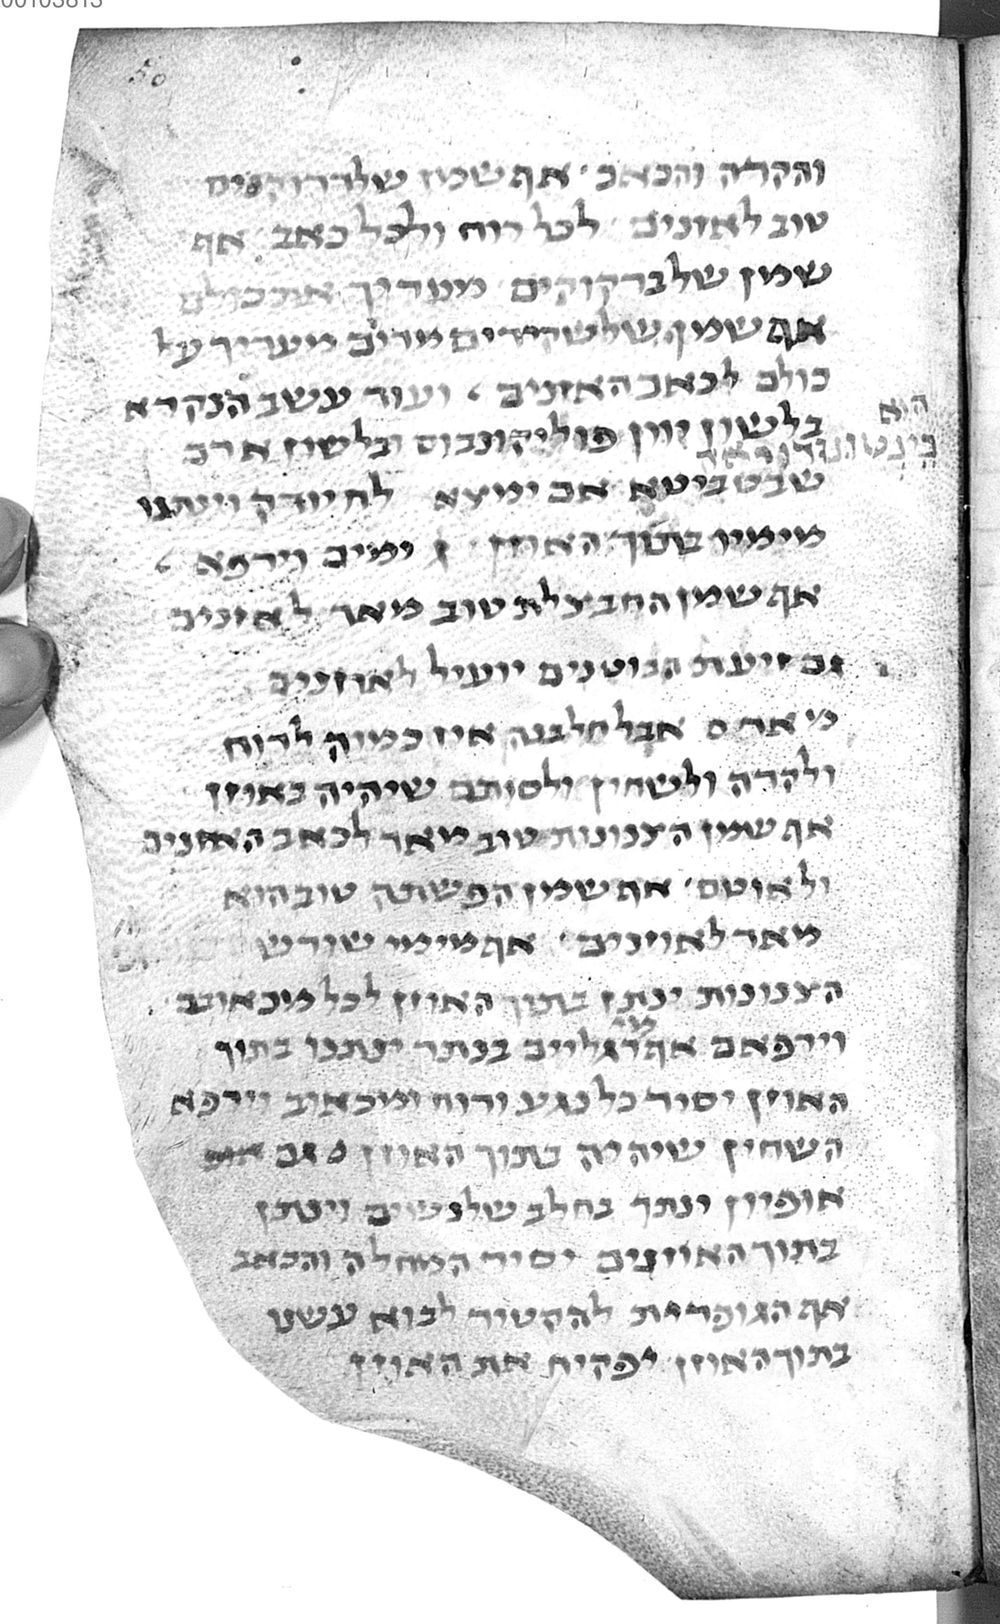 והקרה והכאב׳ אף שמן של
טוב לאזנים לכל רוח ולכל כאב אף
שמן של ברקוקים מעדיף
אף שמן של שקידים מרים מעדיף על
כולם לכאב האזנים ועוד עשב הנקרא
הוא
בלשון יוון פוליקונבוס ובלשון ארם
שבטביטא אם ימצא לח יודק וינתנו
מימיו בתוך האוזן ג ימים וירפא
אף שמן החבצלת טוב מאד לאזנים
גם זיעת הבוטנים יועיל לאוזנים
אבל חלבנה אין כמוה לרוח
ולקרה ולשחין ולסותם שיהיה באוזן
אף שמן הצנונות טוב מאד לכאב האזנים
ולאוטם׳ אף שמן הפשתה טוב הוא
מאד לאוזנים׳ אף מימי שורש
הצנונות ינתן בתוך האוזן לכל מכאובם
מי
וירפאם אף רגליים בנתר ינתנו בתוך
האוזן יסיר כל נגע ורוח ומכאוב וירפא
השחין שיהיה בתוך האוזן גם
אופיון ינתך בחלב של נשים וינתן
בתוך האוזנים יסיר המחלה והכאב
אף הגופרית להקטיר לבוא עשנו
בתוך האוזן יפקיח את האוזן